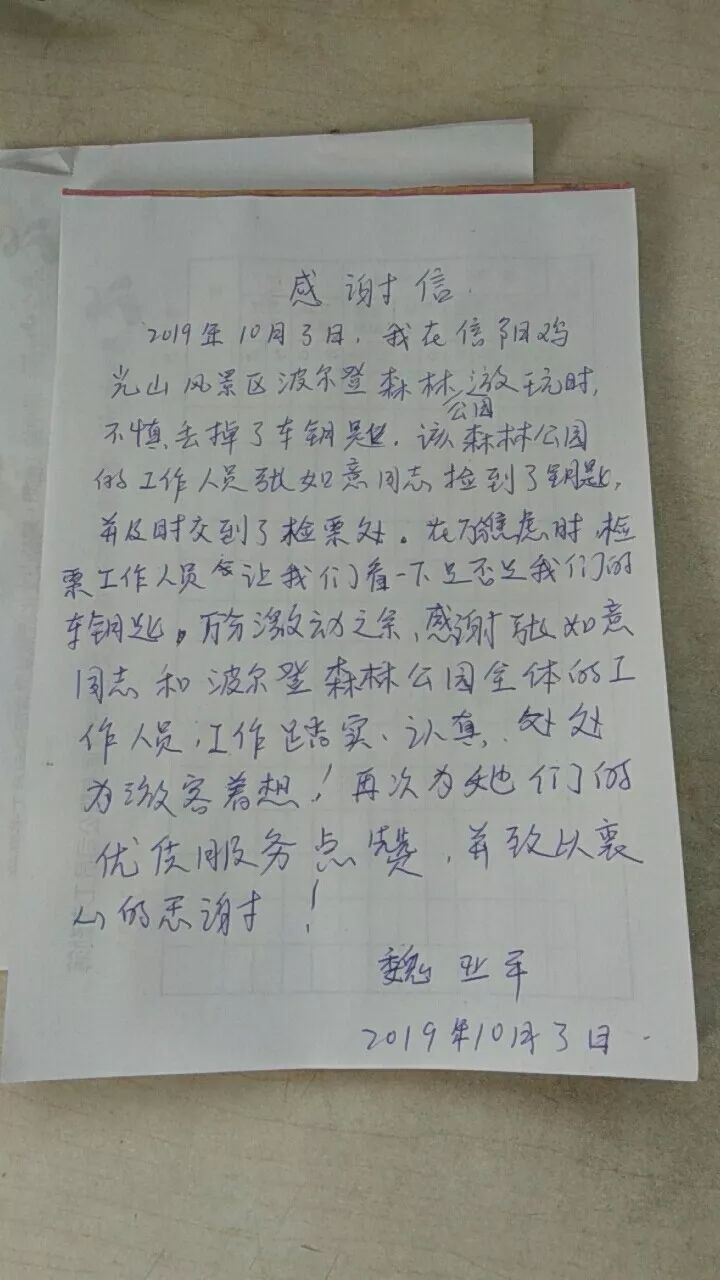 感谢信
2019年10月3日,我在信阳鸡
公山风景区波尔登森林公园游玩时,
不慎丢掉了车钥匙,该森林公园
的工作人员张如意同志捡到了钥匙,
并及时交到了检票处。在万分焦虑时,检
票工作人员让我们看一下是否是我们的
车钥匙。万分激动之余,感谢张如意
同志和波尔登森林公园全体的工
作人员,工作踏实、认真、处处
为游客着想!再次为她们的
优质服务点赞,并致以衷
心的感谢!
魏亚军
2019年10月3日